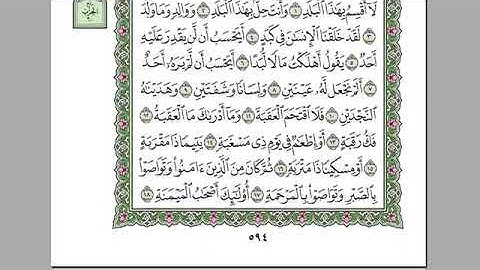 لَآ أُقْسِمُ بِهَٰذَا ٱلْبَلَدِ ١ وَأَنتَ حِلٌّۢ بِهَٰذَا ٱلْبَلَدِ ٢ وَوَالِدٍ وَمَا وَلَدَ
٣ لَقَدْ خَلَقْنَا ٱلْإِنسَٰنَ فِى كَبَدٍ ٤ أَيَحْسَبُ أَن لَّن يَقْدِرَ عَلَيْهِ
أَحَدٌ ٥ يَقُولُ أَهْلَكْتُ مَالًا لُّبَدًا ٦ أَيَحْسَبُ أَن لَّمْ يَرَهُۥٓ أَحَدٌ
٧ أَلَمْ نَجْعَل لَّهُۥ عَيْنَيْنِ ٨ وَلِسَانًا وَشَفَتَيْنِ ٩ وَهَدَيْنَٰهُ
ٱلنَّجْدَيْنِ ١٠ فَلَا ٱقْتَحَمَ ٱلْعَقَبَةَ ١١ وَمَآ أَدْرَىٰكَ مَا ٱلْعَقَبَةُ ١٢
فَكُّ رَقَبَةٍ ١٣ أَوْ إِطْعَٰمٌ فِى يَوْمٍ ذِى مَسْغَبَةٍ ١٤ يَتِيمًا ذَا مَقْرَبَةٍ
١٥ أَوْ مِسْكِينًا ذَا مَتْرَبَةٍ ١٦ ثُمَّ كَانَ مِنَ ٱلَّذِينَ ءَامَنُوا۟ وَتَوَاصَوْا۟
بِٱلصَّبْرِ وَتَوَاصَوْا۟ بِٱلْمَرْحَمَةِ ١٧ أُو۟لَٰٓئِكَ أَصْحَٰبُ ٱلْمَيْمَنَةِ ١٨
٥٩٤